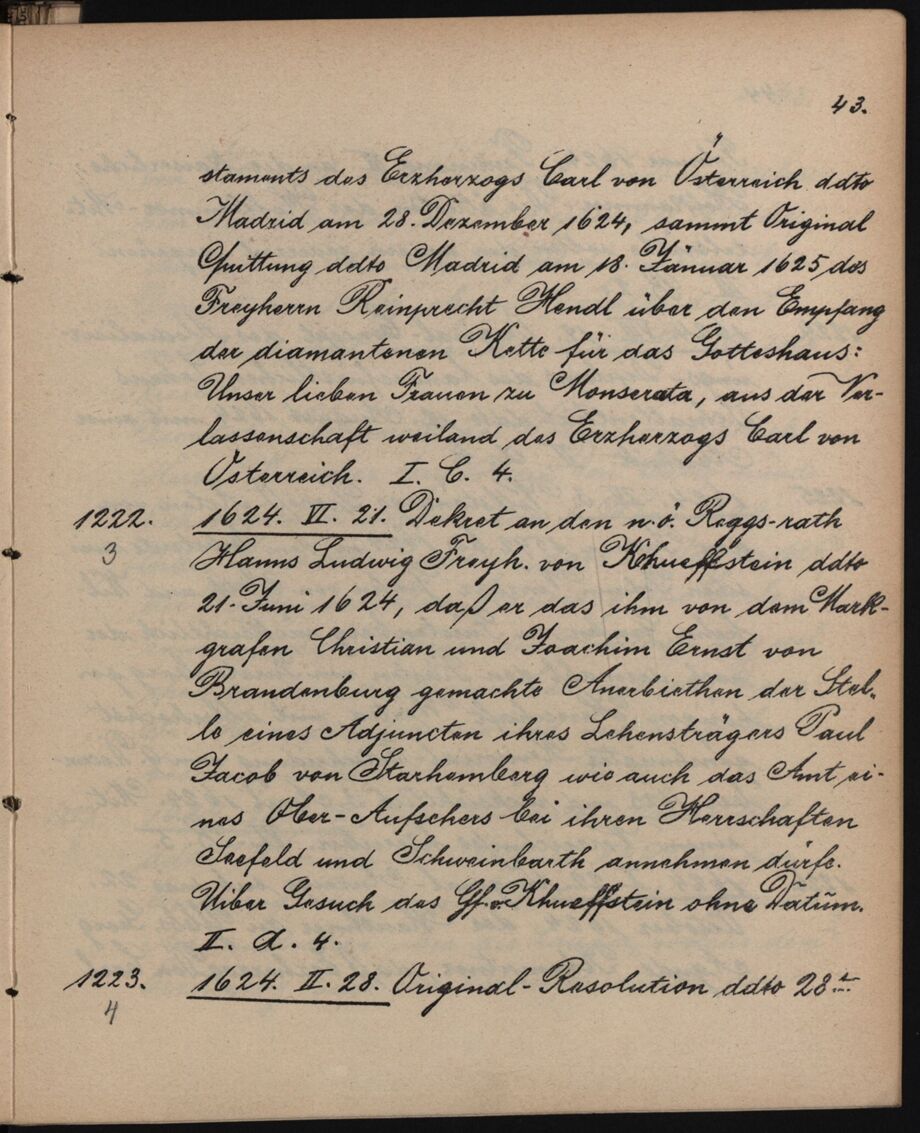 43.
staments des Erzherzogs Carl von Österreich ddto
Madrid am 28. Dezember 1624, sammt Original
Quittung ddto Madrid am 18. Jänuar 1625 des
Freyherrn Reinprecht Hendl über den Empfang
der diamantenen Kette für das Gotteshaus:
Unser lieben Frauen zu Monserata, aus der Ver-
lassenschaft weiland des Erzherzogs Carl von
Österreich. I. C. 4.
1222. 1624. VI. 21. Dekret an den n. ö. Reggs-rath
3 Hanns Ludwig Freyh. von Khueffstein ddto
21. Juni 1624, daß er das ihm von dem Mark-
grafen Christian und Joachim Ernst von
Brandenburg gemachte Anerbiethen der Stel-
le eines Adjuncten ihres Lehensträgers Paul
Jacob von Starhemberg wie auch das Amt ei-
nes Ober-Aufsehers bei ihren Herrschaften
Seefeld und Schweinbarth annehmen dürfe.
Uiber Gesuch des Gf. v. Khueffstein ohne Datum.
II. A. 4.
1223. 1624. II. 28. Original-Resolution ddto 28t
4